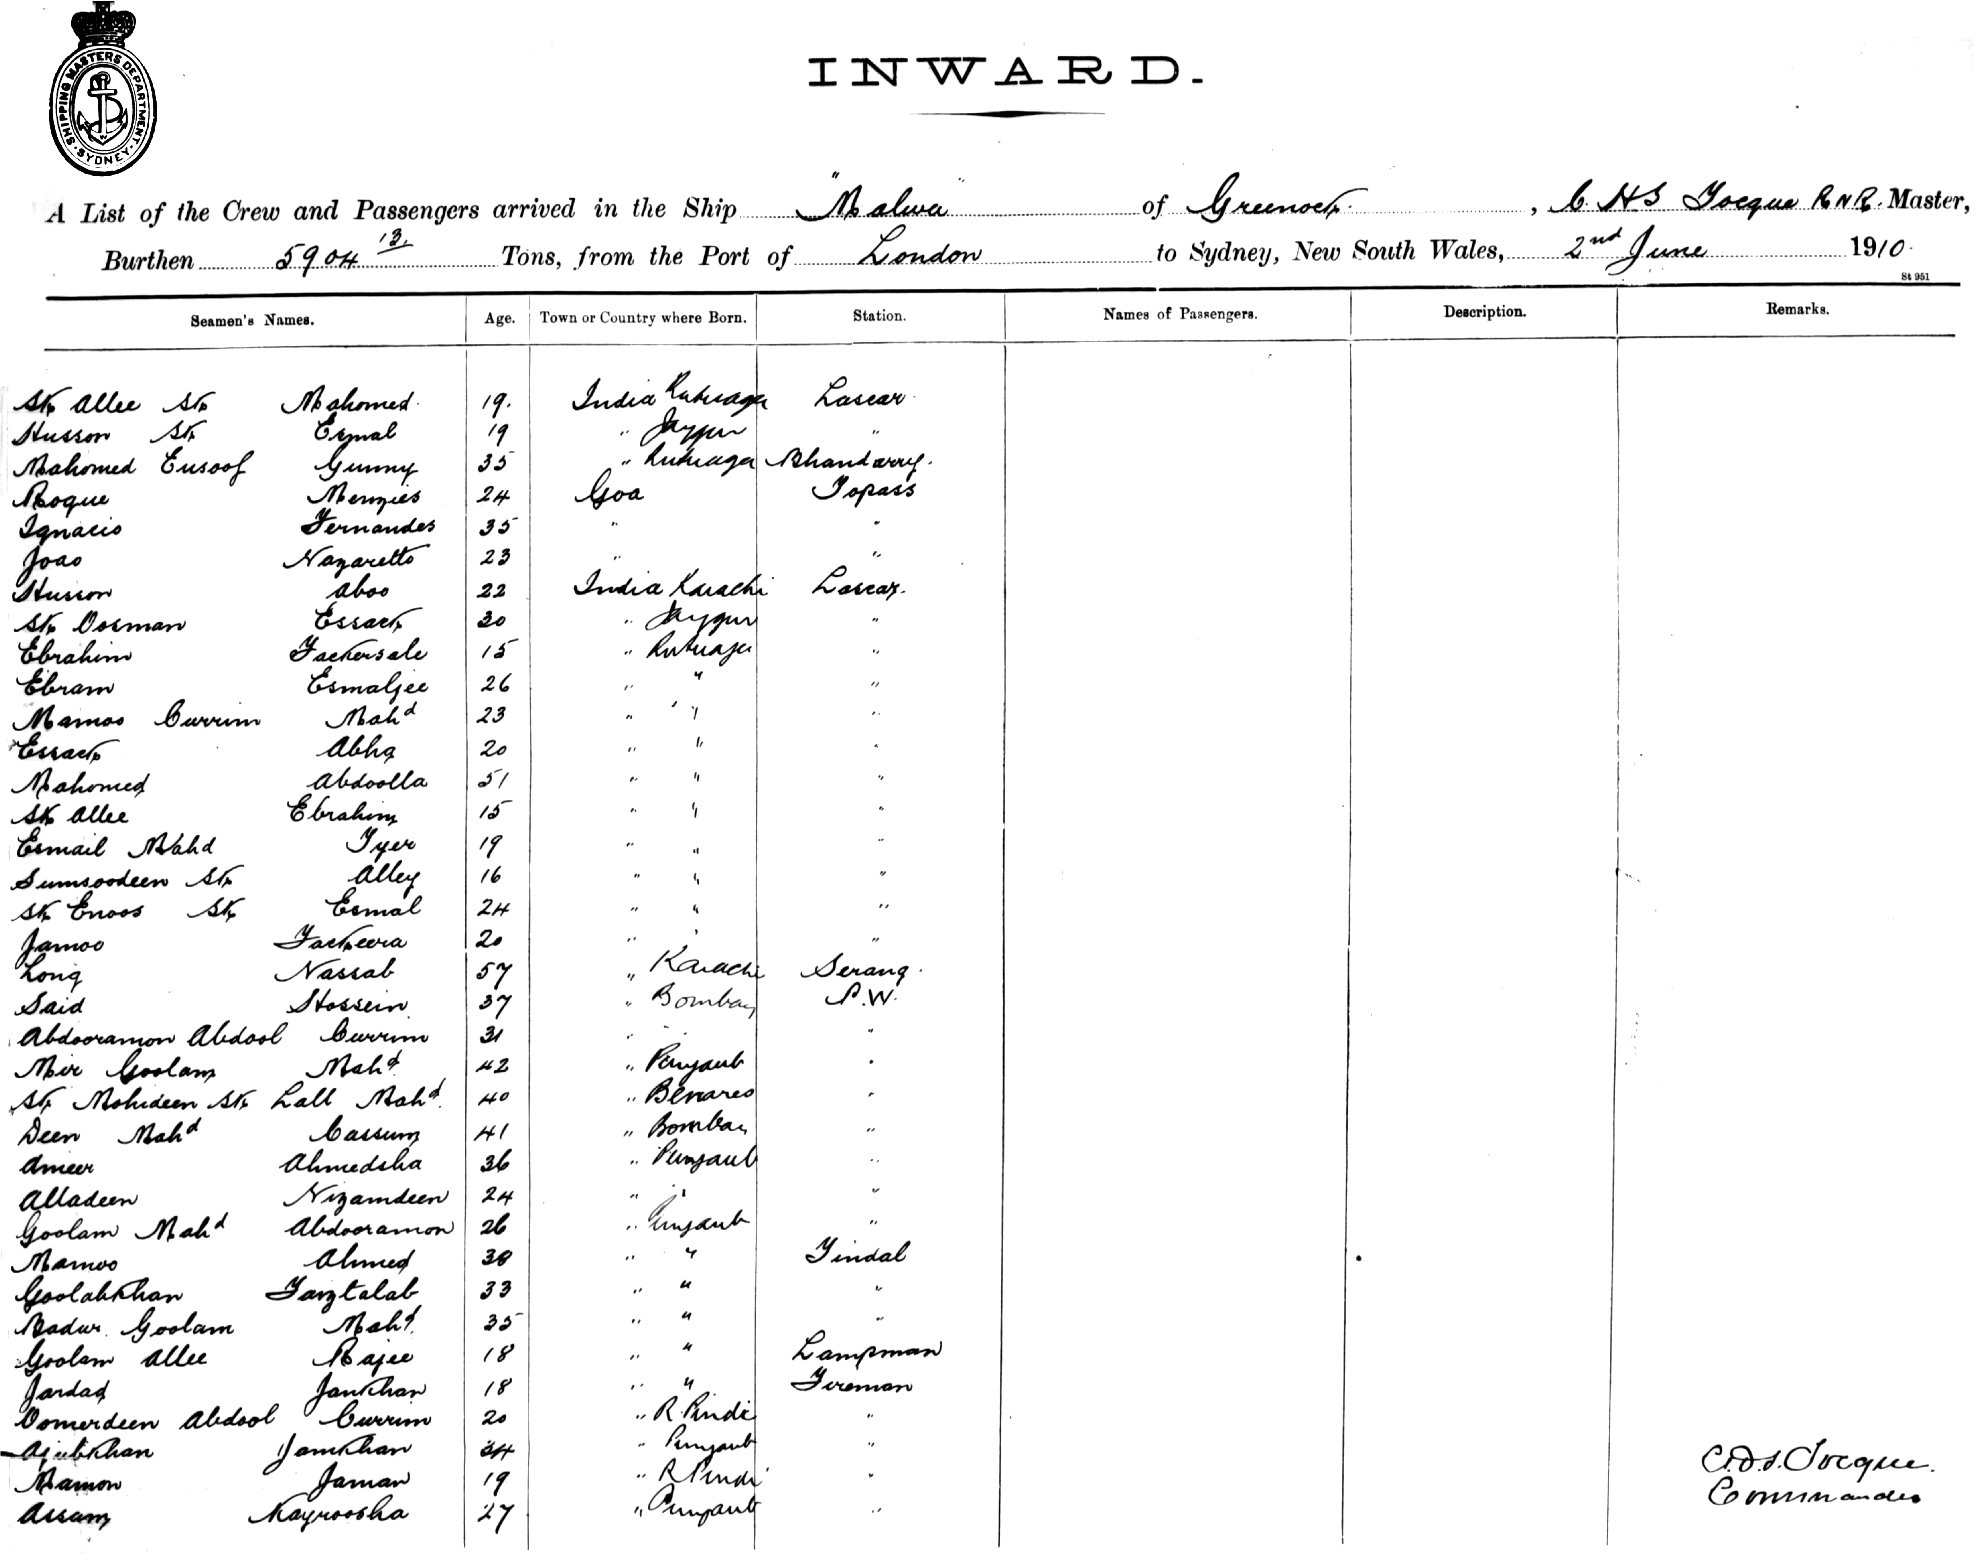 SHIPPING MASTERS DEPARTMENT · SYDNEY ·
INWARD.
A List of the Crew and Passengers arrived in the Ship "Malwa" of Greenock, C. H S Tocque R N R. Master,
Burthen 5904 13/ Tons, from the Port of London to Sydney, New South Wales, 2nd June 1910.
St 951
Seamen's Names. Age. Town or Country where Born. Station. Names of Passengers. Description. Remarks.
Sk Allee Sk Mahomed 19. India Rutnager Lascar
Husson Sk Esmal 19 " Jaygur "
Mahomed Eusoof Gunny 35 " Rutnager Bhandarry.
Roque Menzies 24 Goa Topass
Ignacio Fernandes 35 " "
Joao Nazaretto 23 " "
Husson Aboo 22 India Karachi Lascar.
Sk Oosman Essack 30 " Jaygur "
Ebrahim Fackersale 15 " Rutnager "
Ebram Esmaljee 26 " " "
Mamoo Currim Mahd 23 " " "
Essack Abha 20 " " "
Mahomed Abdoolla 51 " " "
Sk Allee Ebrahim 15 " " "
Esmail Mahd Tyer 19 " " "
Sumsoodeen Sk Alley 16 " " "
Sk Enoos Sk Esmal 24 " " "
Jamoo Fackeera 20 " " "
Long Nassab 57 " Karachi Serang.
Said Hossein 37 " Bombay P.W.
Abdooramon Abdool Currim 31 " " "
Mir Goolam Mahd 42 " Punjaub "
Sk Mohideen Sk Lall Mahd. 40 " Benares "
Deen Mahd Cassum 41 " Bombay "
Ameer Ahmedsha 36 " Punjaub "
Alladeen Nizamdeen 24 " " "
Goolam Mahd Abdooramon 26 " Punjaub "
Mamoo Ahmed 38 " " Tindal
Goolabkhan Fazltalab 33 " " "
Badur Goolam Mahd. 35 " " "
Goolam Allee Rajee 18 " " Lampman
Jardad Jankhan 18 " " Fireman
Oomerdeen Abdool Currim 20 " R. Pindi "
Ajubkhan Jamkhan 34 " Punjaub "
Mamon Jaman 19 " R Pindi "
Assam Nayroosha 27 " Punjaub "
C.H.S. Tocque.
Commander